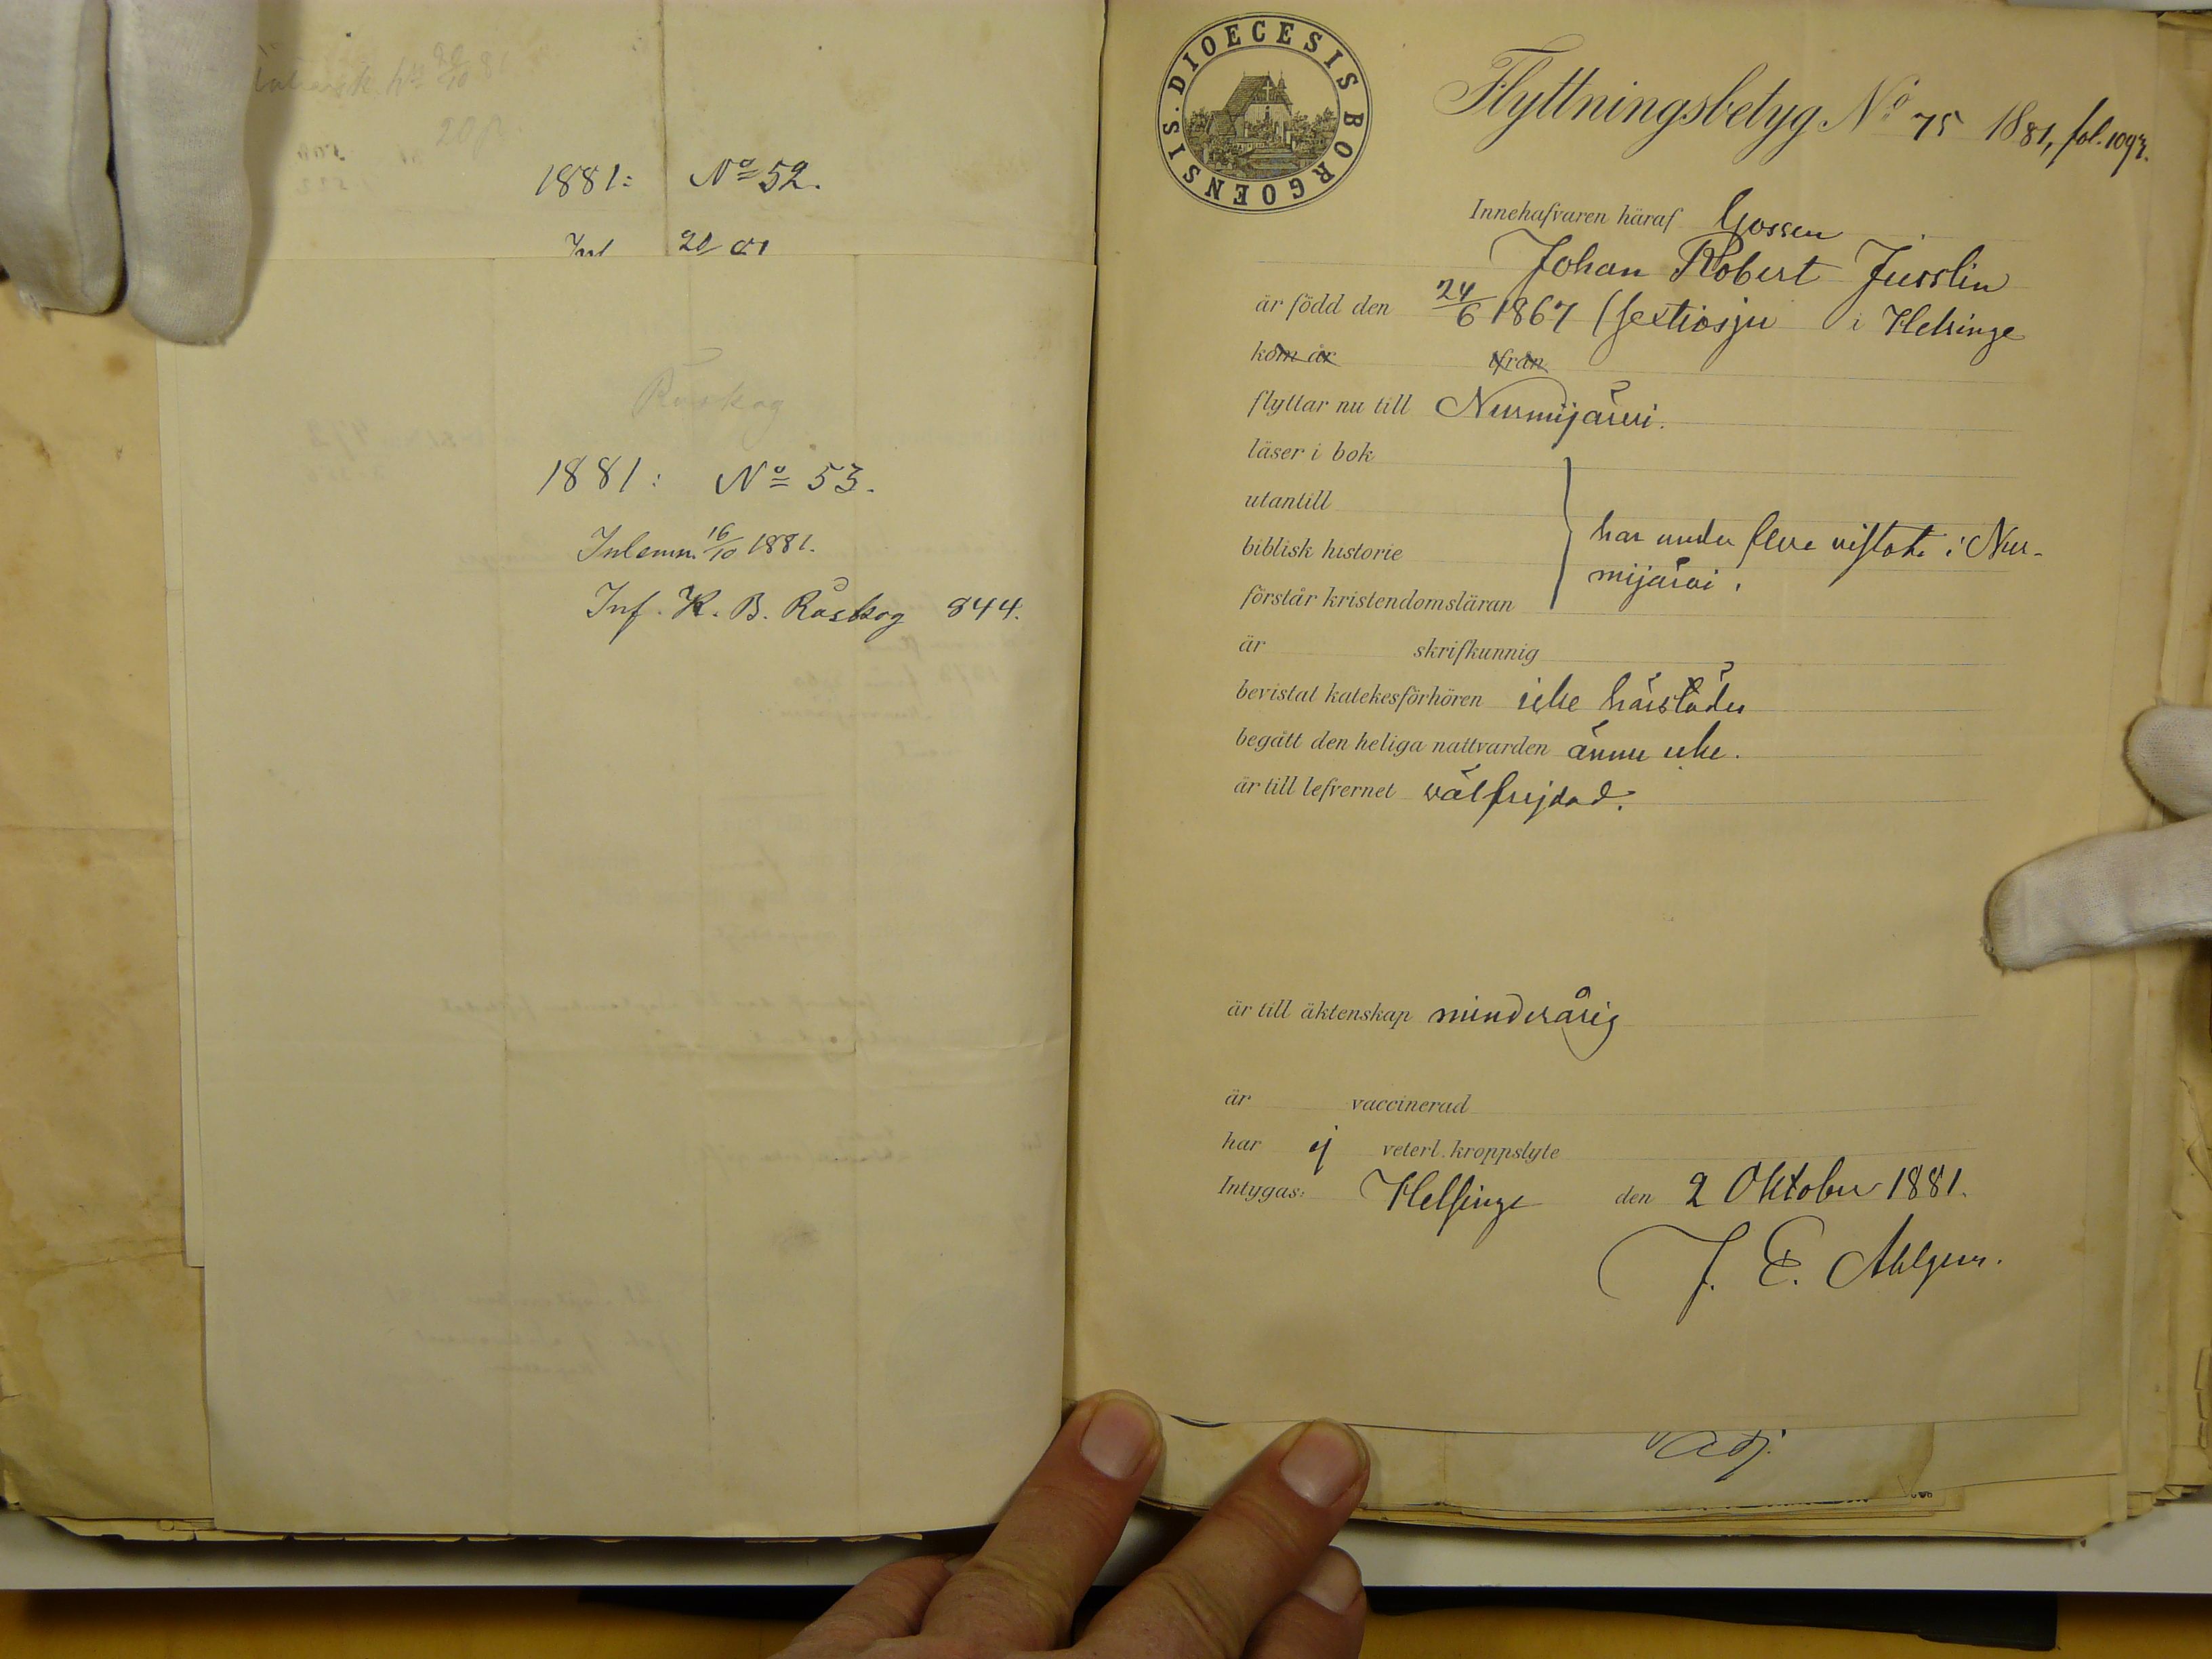 1881: No 52.
Inl
Råskog
1881: No 53.
Inlemn. 16/10 1881.
Inf. K. B. Råskog 844.
DIOECESIS BORGOENSIS.
Flyttningsbetyg No 75 1881, fol. 1093.
Innehafvaren häraf Gossen
Johan Robert Jusslin
är född den 24/6 1867 (sextiosju i Helsinge
kom år ifrån
flyttar nu till Nurmijärvi.
läser i bok
utantill
biblisk historie
har under flere vistats i Nur-
mijärvi.
förstår kristendomsläran
är skrifkunnig
bevistat katekesförhören icke härstädes
begått den heliga nattvarden ännu icke.
är till lefvernet välfrejdad.
är till äktenskap minderårig
är vaccinerad
har ej veterl. kroppslyte
Intygas: Helsinge den 2 Oktober 1881.
J. E. Ahlgren.
Adj.